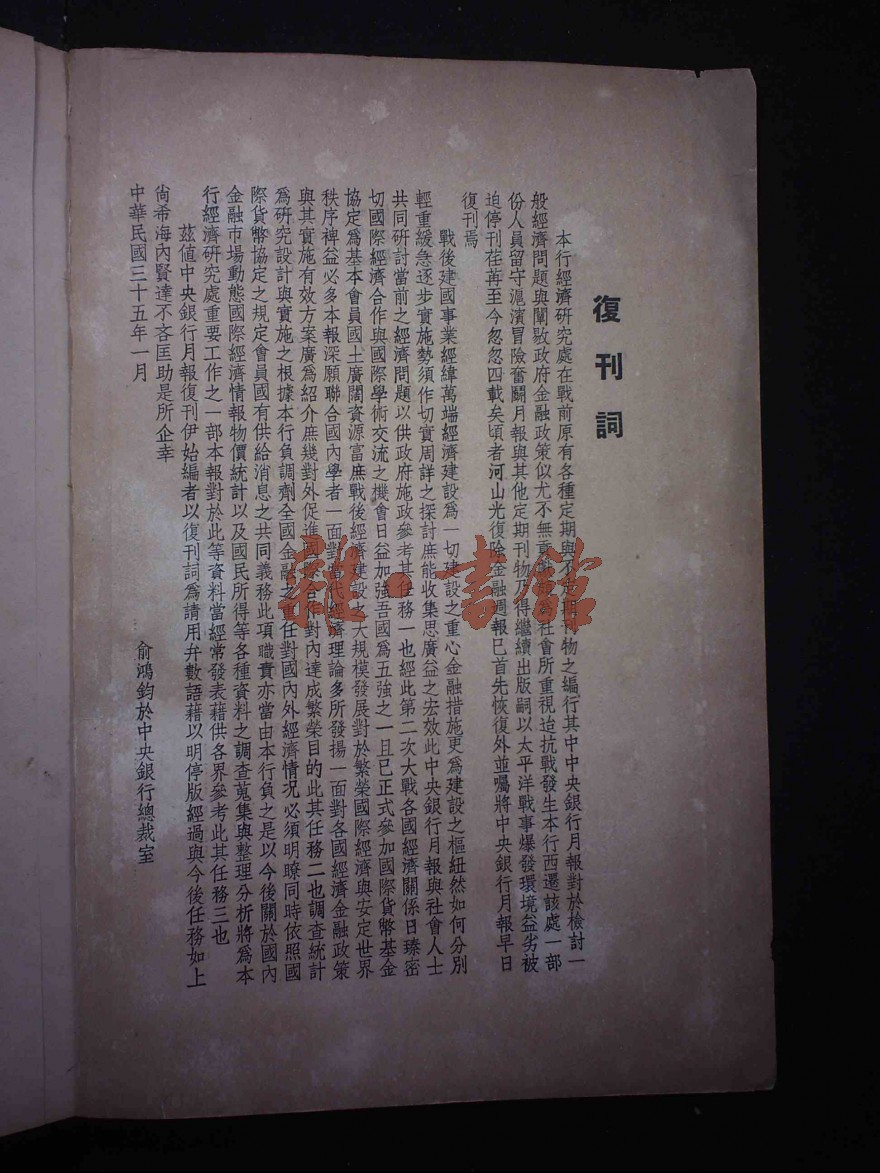 復刊詞
本行經濟研究處在戰前原有各種定期與不定期刊物之編行其中中央銀行月報對於檢討一
般經濟問題與闡敭政府金融政策似尤不無貢獻故為社會所重視迨抗戰發生本行西遷該處一部
份人員留守滬濱冒險奮鬭月報與其他定期刊物乃得繼續出版嗣以太平洋戰事爆發環境益劣被
迫停刊荏苒至今忽忽四載矣頃者河山光復除金融週報已首先恢復外並囑將中央銀行月報早日
復刊焉
戰後建國事業經緯萬端經濟建設爲一切建設之重心金融措施更爲建設之樞紐然如何分別
輕重緩急逐步實施勢須作切實周詳之探討庶能收集思廣益之宏效此中央銀行月報與社會人士
共同研討當前之經濟問題以供政府施政參考其任務一也經此第二次大戰各國經濟關係日臻密
切國際經濟合作與國際學術交流之機會日益加強吾國爲五強之一且已正式參加國際貨幣基金
協定爲基本會員國土廣闊資源富庶戰後經濟建設之大規模發展對於繁榮國際經濟與安定世界
秩序裨益必多本報深願聯合國內學者一面對當代經濟理論多所發揚一面對各國經濟金融政策
與其實施有效方案廣爲紹介庶幾對外促進國際合作對內達成繁榮目的此其任務二也調查統計
爲研究設計與實施之根據本行負調劑全國金融之重任對國內外經濟情況必須明瞭同時依照國
際貨幣協定之規定會員國有供給消息之共同義務此項職責亦當由本行負之是以今後關於國內
金融市場動態國際經濟情報物價統計以及國民所得等各種資料之調查蒐集與整理分析將爲本
行經濟研究處重要工作之一部本報對於此等資料當經常發表藉供各界參考此其任務三也
茲值中央銀行月報復刊伊始編者以復刊詞爲請用弁數語藉以明停版經過與今後任務如上
尙希海內賢達不吝匡助是所企幸
中華民國三十五年一月
俞鴻鈞於中央銀行總裁室
龍·書館